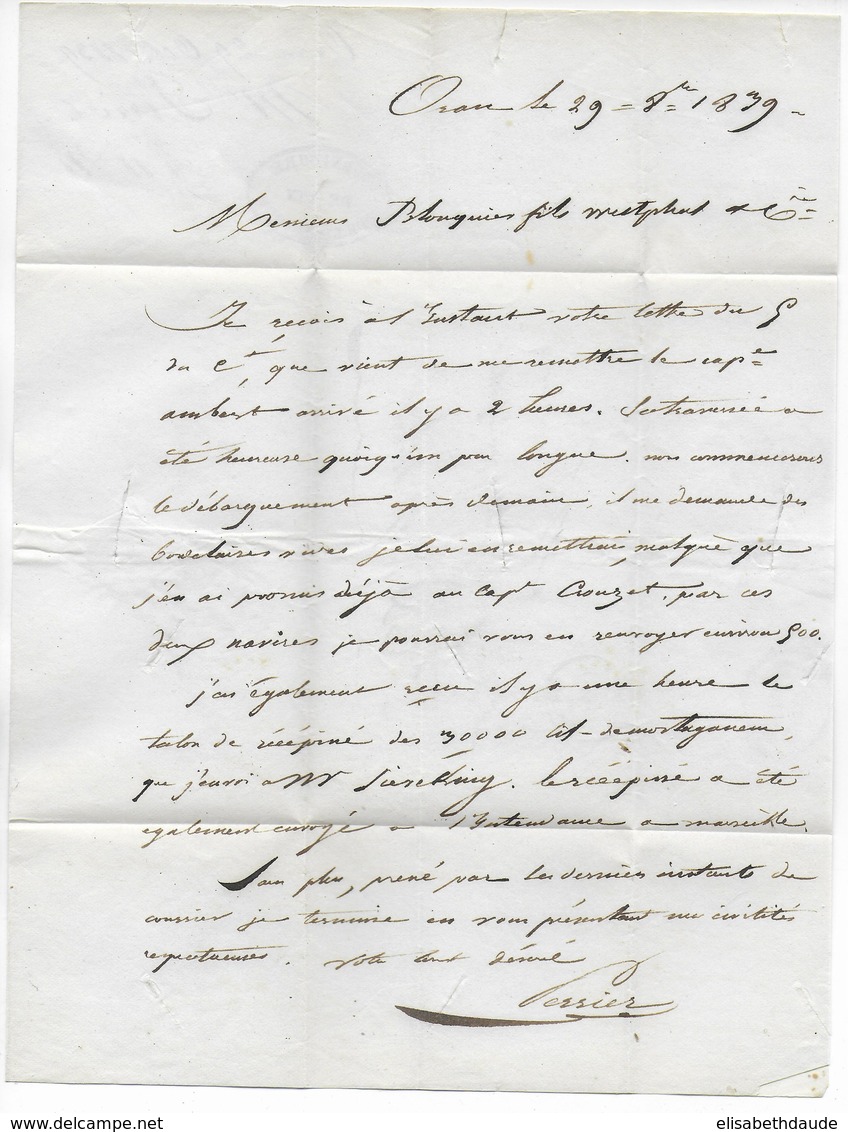 Oran le 29 = 8bre = 1839 -
Messieurs Blouquier fils westphal & Cie
Je reçois à l'Instant votre lettre du 9
du Ct, que vient de me remettre le cape
ambert arrivé il y a 2 heures. Sa traversée a
été heureuse quoiqu'un peu longue. nous commencerons
le débarquement après demain, il me demande des
bordelaises vives je lui en remettrai, malgré que
j'en ai promis déjà au Capt Crouzet, par ces
deux navires je pourrai vous en renvoyer environ 900.
j'ai également reçu il y a une heure le
talon de récépissé des 30000 lit - de mostaganem,
que j'envoi a Mr Sierking. le récépissé a été
également envoyé a l'Intendance a marseille.
San plus, prené par les derniers instants du
courrier je termine en vous présentant mes civilités
respectueuses. votre tout dévoué
Perrier
delcampe.net
elisabethdaude